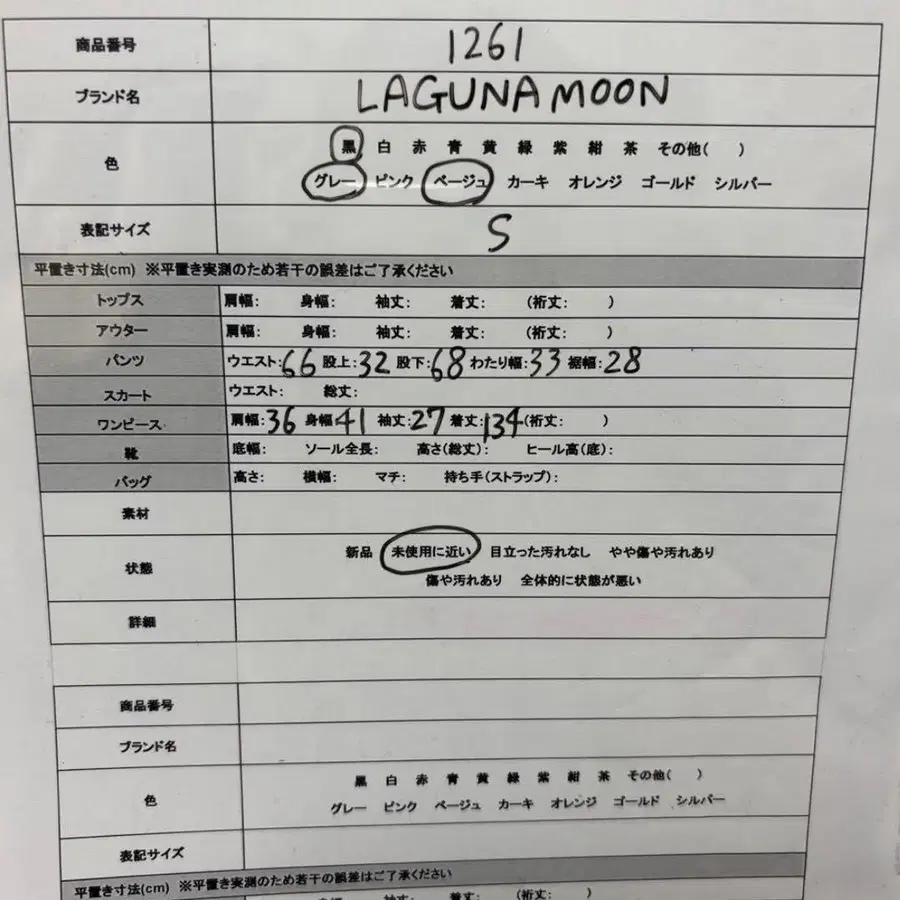 商品番号 1261
ブランド名 LAGUNAMOON
色 黒 白 赤 青 黄 緑 紫 紺 茶 その他( )
グレー ピンク ベージュ カーキ オレンジ ゴールド シルバー
表記サイズ S
平置き寸法(cm) ※平置き実測のため若干の誤差はご了承ください
トップス 肩幅: 身幅: 袖丈: 着丈: (裄丈: )
アウター 肩幅: 身幅: 袖丈: 着丈: (裄丈: )
パンツ ウエスト:66 股上:32 股下:68 わたり幅:33 裾幅:28
スカート ウエスト: 総丈:
ワンピース 肩幅:36 身幅41 袖丈:27 着丈:134(裄丈: )
靴 底幅: ソール全長: 高さ(総丈): ヒール高(底):
バッグ 高さ: 横幅: マチ: 持ち手(ストラップ):
素材
状態 新品 未使用に近い 目立った汚れなし やや傷や汚れあり
傷や汚れあり 全体的に状態が悪い
詳細
商品番号
ブランド名
色 黒 白 赤 青 黄 緑 紫 紺 茶 その他( )
グレー ピンク ベージュ カーキ オレンジ ゴールド シルバー
表記サイズ
平置き寸法(cm) ※平置き実測のため若干の誤差はご了承ください
肩幅: 身幅: 袖丈: 着丈: (裄丈: )